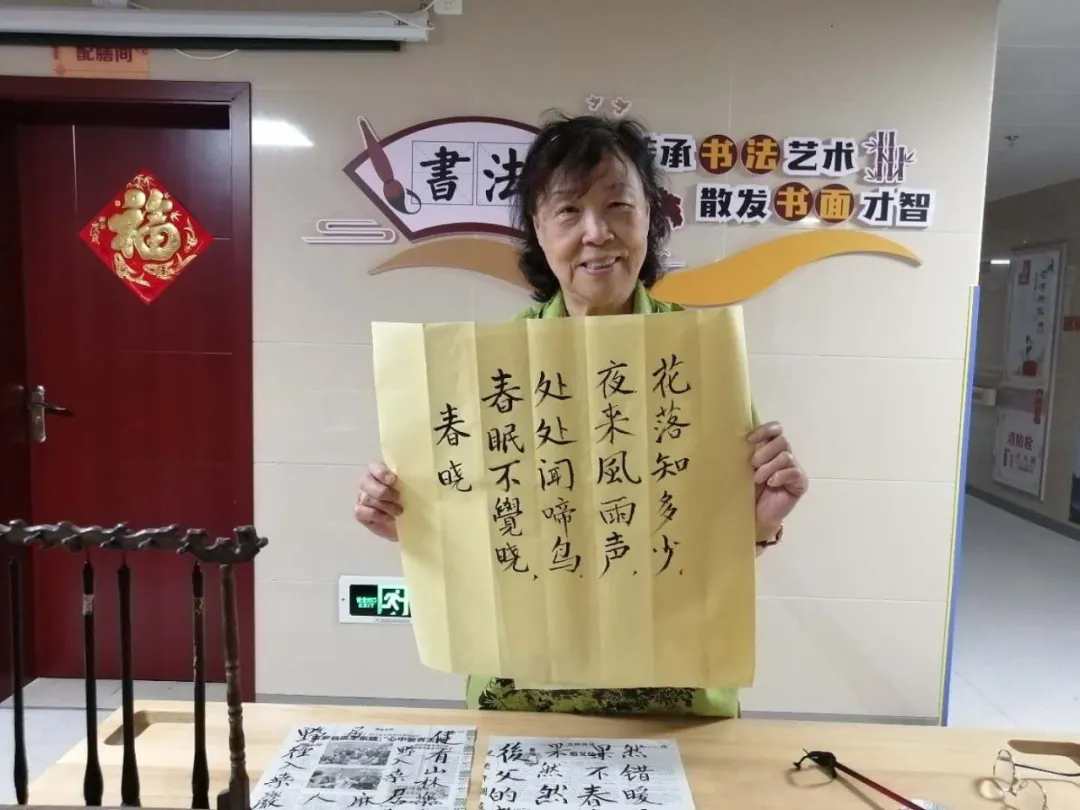 配膳间
福
書法
承书法艺术
散发书面才智
春晓
春眠不覺晓，
处处闻啼鸟，
夜来風雨声，
花落知多少，
EXIT
消防栓
然错暖
果不春
果然然
後父的